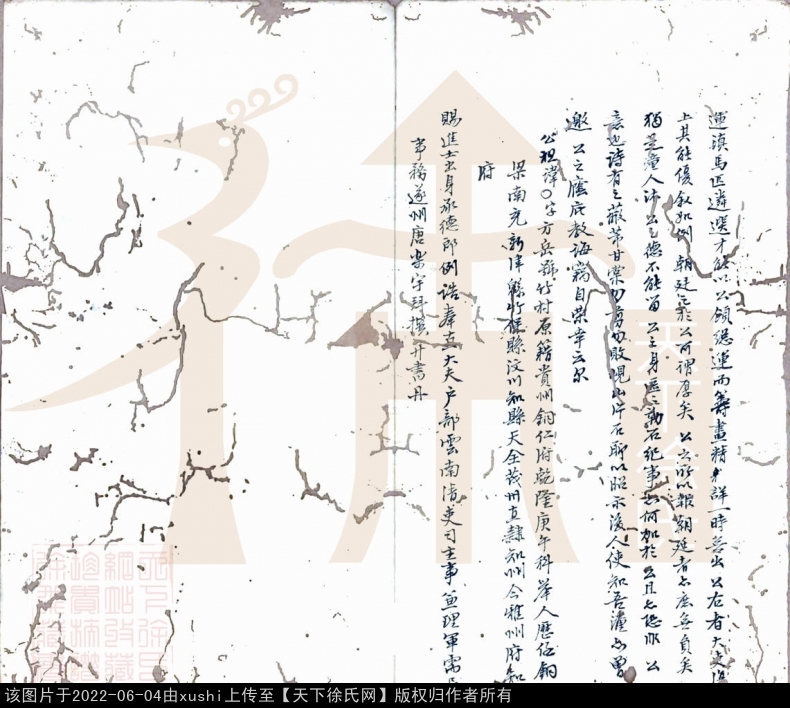 運滇馬匹遴選才能以公領總運而籌畫精詳一時無出公右者大吏
上其能優敘如例朝廷之於公可謂厚矣公之所以報朝廷者亦庶無負矣
猶是潼人沐公之德不能留公之身區區勒石紀事亦何加於公且亦恐非公
意也詩有之蔽芾甘棠勿翦勿敗峴山片石聊以昭示後人使知吾潼亦曾
邀公之蔭庇教誨竊自榮幸云爾
公祖諱○字方岳號竹村原籍貴州銅仁府乾隆庚午科舉人歷任銅
梁南充新津縣竹縣汶川知縣天全茂州直隸知州今雅州府知
府
賜進士出身承德郎例誥奉直大夫戶部雲南清吏司主事兼理軍需
事務遂州唐樂宇拜撰并書丹
天下徐氏
该图片于2022-06-04由xushi上传至【天下徐氏网】版权归作者所有